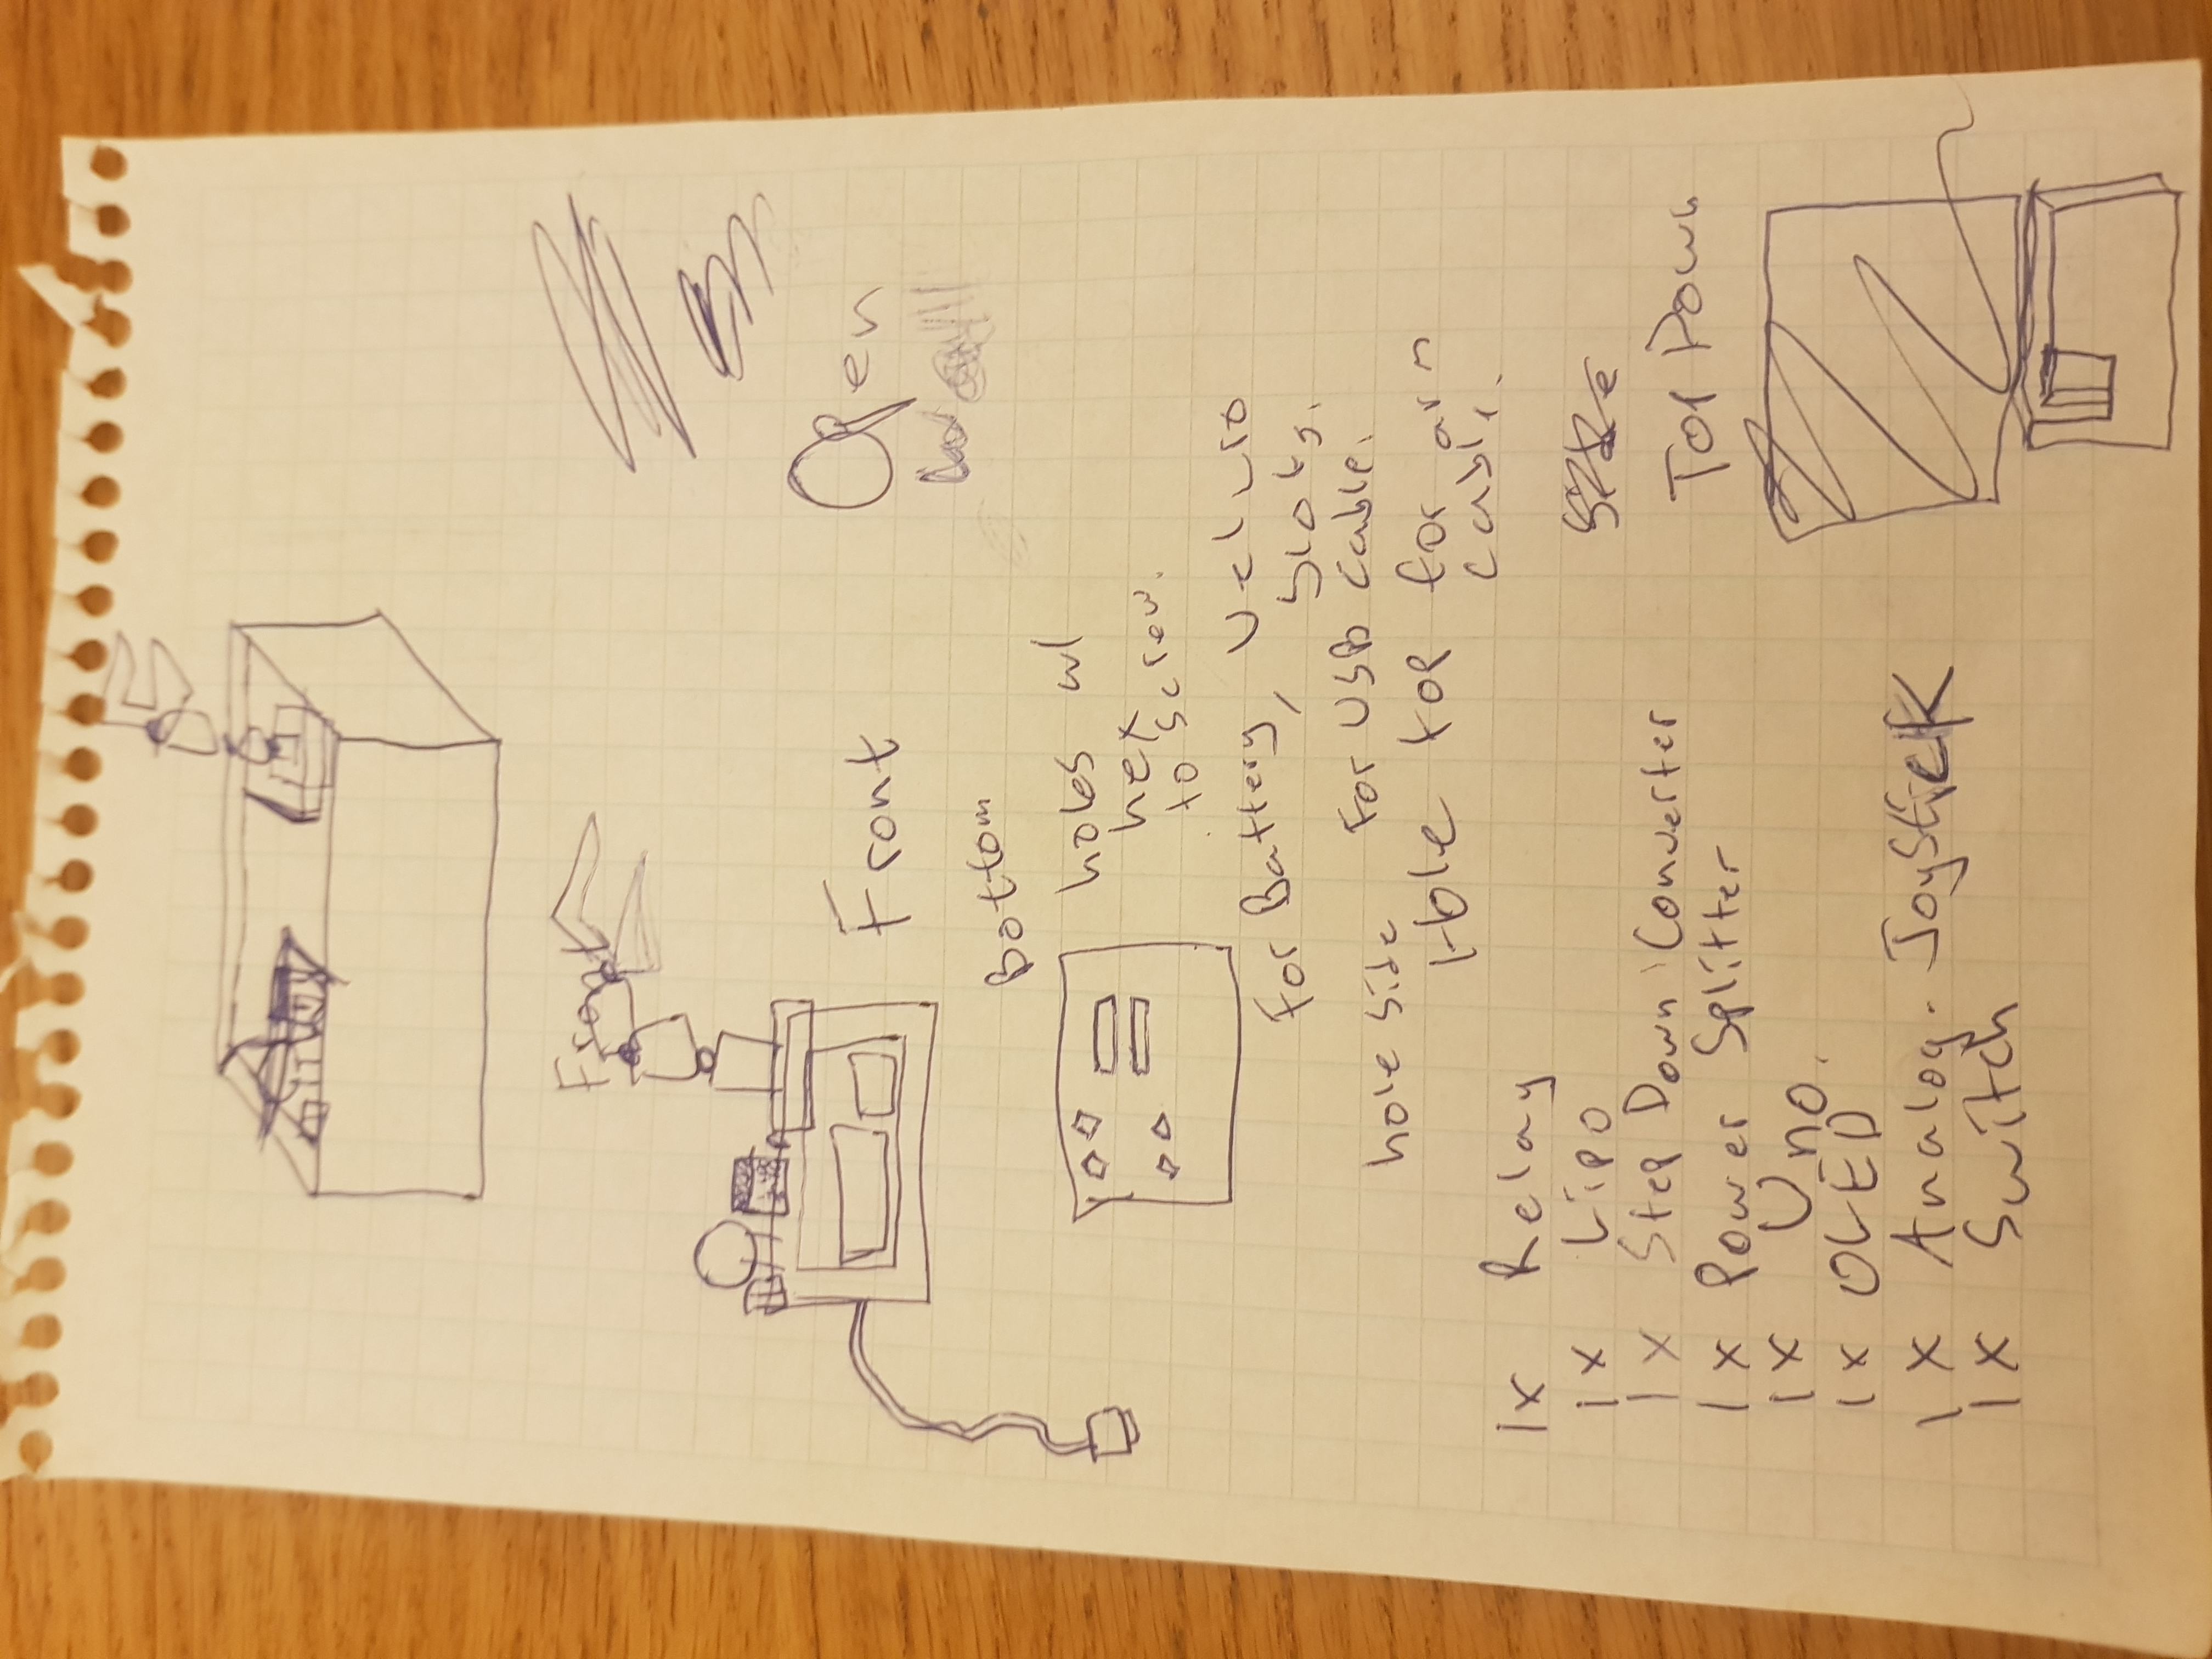 Front
Front
Open
Bottom
holes w/
hex
to screw.
For Battery, Velcro
slots.
hole side For USB cable.
Hole top for arm
cable.
1x Relay
1x Lipo
1x Step Down Converter
1x Power Splitter
1x Uno.
1x OLED
1x Analog. Joystick
1x Switch
Top Down